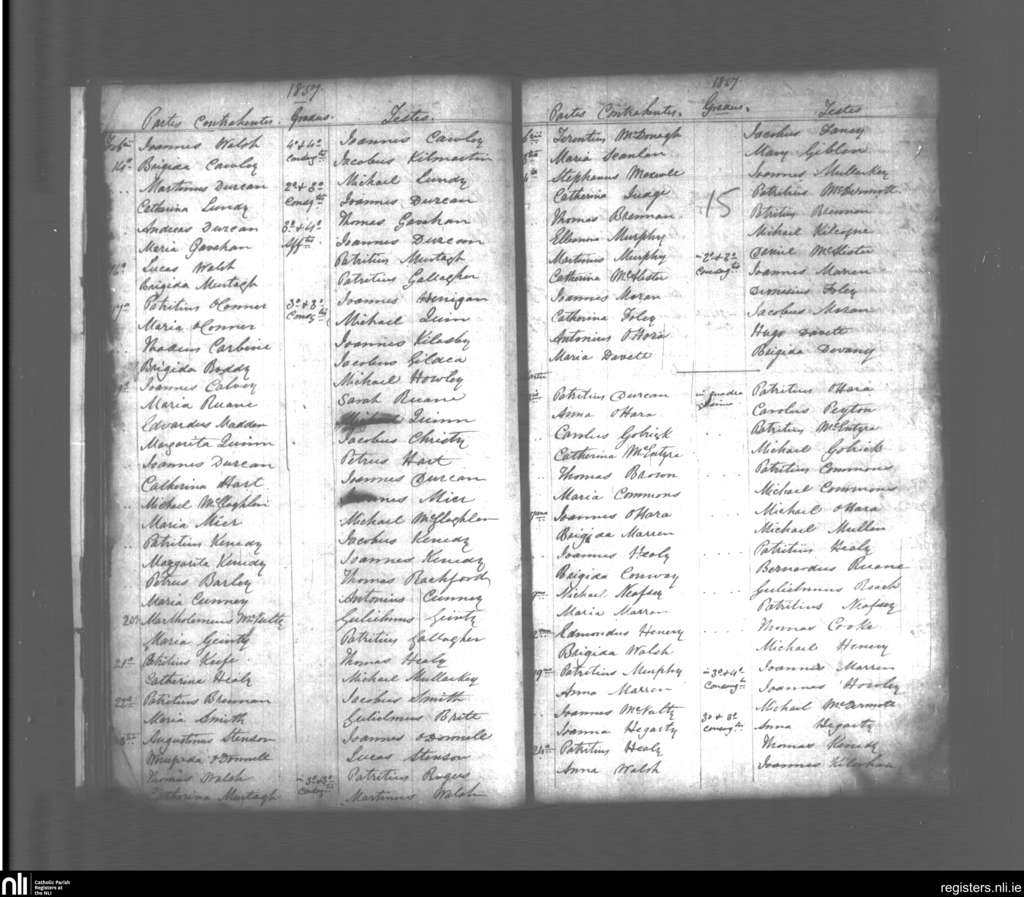 1857.
Partes Contrahentes. Gradus. Testes.
Feb. Joannes Walsh 4o + 4o Joannes Cawley
14o Brigida Cawley Consag. Jacobus Kilmartin
Martinus Durcan 2o + 3o Michael Lundy
Catherina Lundy Consag. Joannes Durcan
Andreas Durcan 3o + 4o Thomas Gavahan
Maria Gavahan Aff. Joannes Durcan
Lucas Walsh Patritius Murtagh
Brigida Murtagh Patritius Gallagher
17o Patritius O'Conner 3o + 3o Joannes Henigan
Maria O'Conner Consag. Michael Quinn
Thadeus Carbine Joannes Kilesby
Brigida Boddy Jacobus Gildea
Joannes Calvey Michael Howley
Maria Ruane Sarah Ruane
Edvardus Madden Quinn
Margarita Quinn Jacobus Christy
Joannes Durcan Petrus Hart
Catherina Hart Joannes Durcan
Michael McGloghlin Mier
Maria Mier Michael McGloghlen
Patritius Kenedy Jacobus Kenedy
Margarita Kenedy Joannes Kenedy
Petrus Barley Thomas Rochford
Maria Cunney Antonius Cunney
20o Bartholemeus McNulty Gulielmus Ginty
Maria Ginty Patritius Gallagher
21o Patritius Keefe Thomas Healy
Catherina Healy Michael Mullarkey
22o Patritius Brennan Jacobus Smith
Maria Smith Gulielmus Britt
Augustinus Stenson Joannes O'Donnell
O'Donnell Lucas Stenson
Thomas Walsh 3o + 3o Patritius Rogers
Catherina Murtagh Consag. Martinus Walsh
1857.
Partes Contrahentes. Gradus. Testes
Terentius McDonagh Jacobus Fancy
Maria Scanlan Mary Giblon
Stephanus Joannes Mullarkey
Catherina Patritius McDermott
15
Thomas Brennan Patritius Brennan
Ellenora Murphy Michael Kilcoyne
Martinus Murphy 2o + 2o Daniel McHester
Catherina McHester Consag. Joannes Marren
Joannes Moran Dionisius Foley
Catherina Foley Jacobus Moran
Antonius O'Hara Hugo Davett
Maria Davett Brigida Devany
Patritius Durcan in quadra Patritius O'Hara
Anna O'Hara Carolus Peyton
Carolus Gobrick Patritius McEntyre
Catherina McEntyre Michael Gobrick
Thomas Brown Patritius Commons
Maria Commons Michael Commons
Joannes O'Hara Michael O'Hara
Brigida Marren Michael Mullen
Joannes Healy Patritius Healy
Brigida Conway Bernardus Ruane
Michael Neafsey Gulielmus Roach
Maria Marren Patritius Neafsey
Edmondus Henery Thomas Cooke
Brigida Walsh Michael Henery
19o Patritius Murphy 3o + 4o Joannes Marren
Anna Marren Consag. Joannes Howley
Joannes McNulty 3o + 3o Michael McDermott
Joanna Hegarty consag. Anna Hegarty
24o Patritius Healy Thomas Kenedy
Anna Walsh Joannes
nli
Catholic Parish
Registers at
the NLI
registers.nli.ie